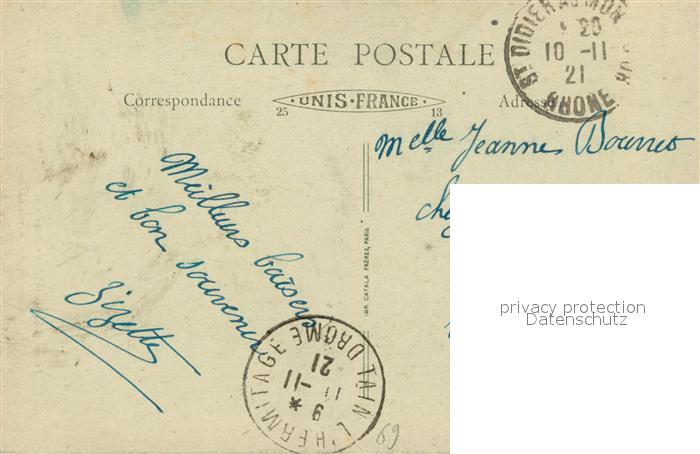 CARTE POSTALE
Correspondance
UNIS-FRANCE
25
13
Adresse
ST DIDIER AU MON
20
10 -11
21
RHONE
Melle Jeanne
Meilleurs baisers
et bon souvenir
Zizette
IMP. CATALA FRÈRES, PARIS
TAIN L'HERMITAGE DROME
9
11 -11
21
69
privacy protection
Datenschutz